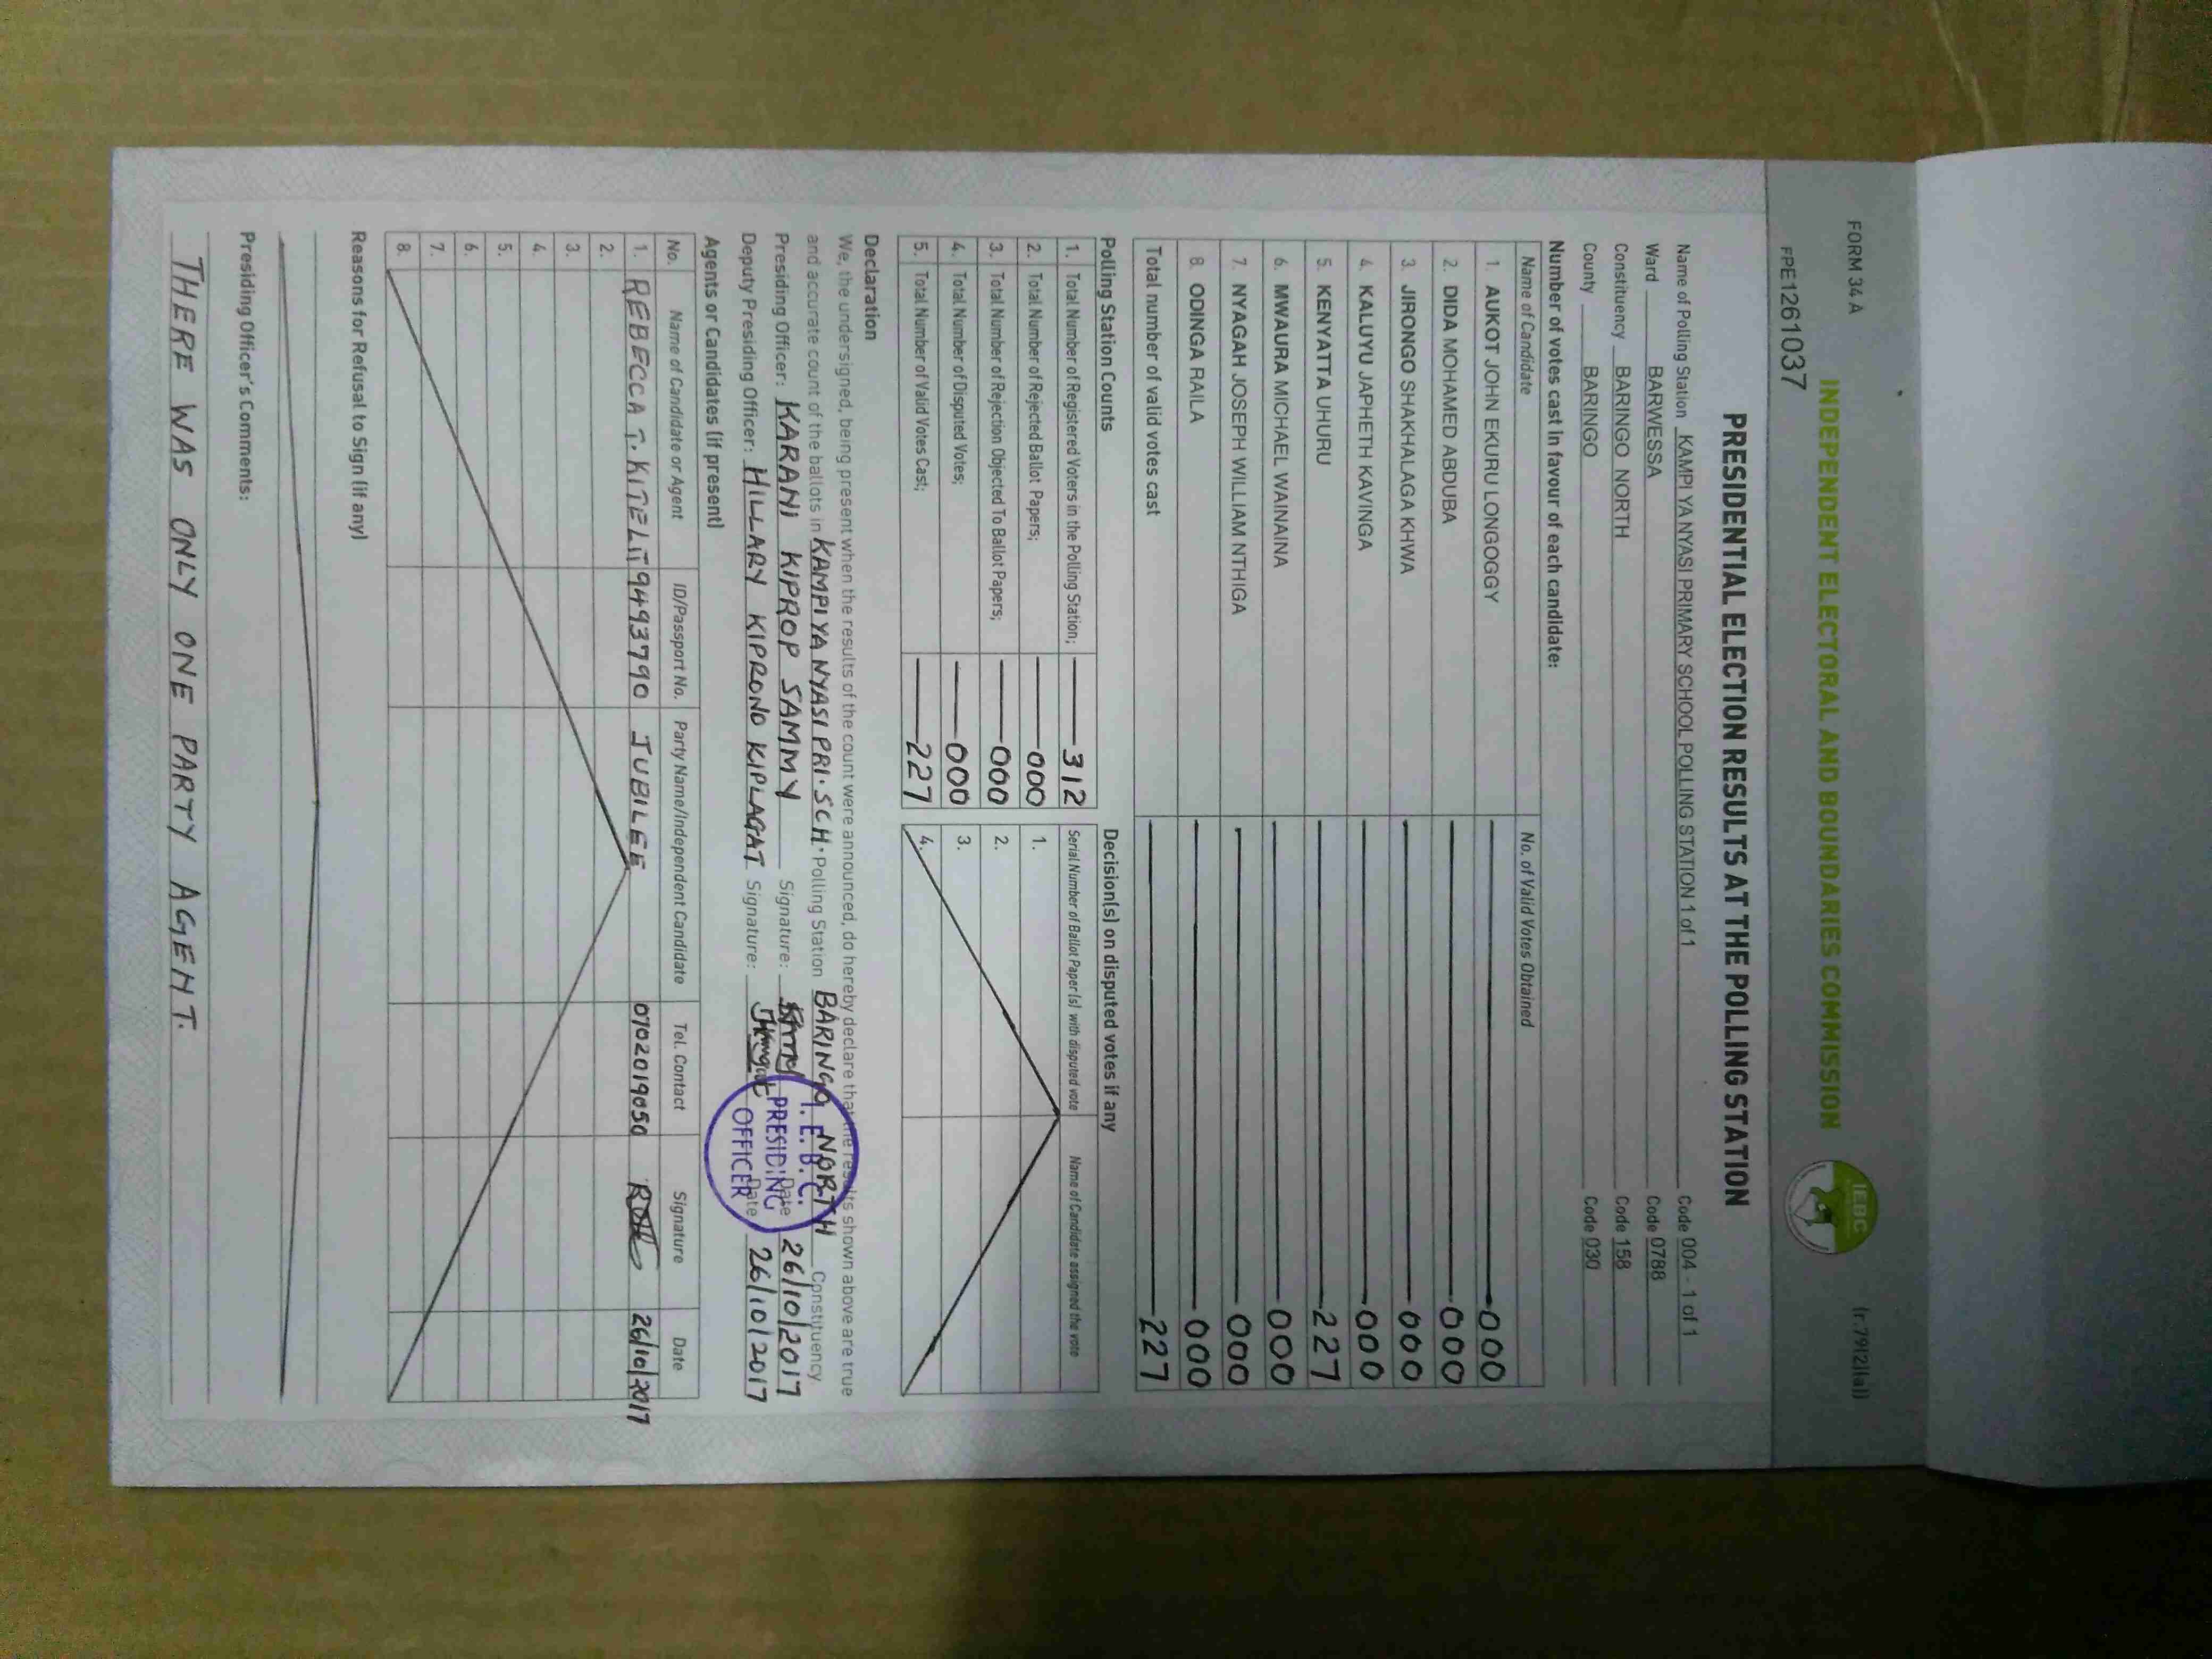 FORM 34 A
(r.79(2)(a))
INDEPENDENT ELECTORAL AND BOUNDARIES COMMISSION
IEBC
FPE1261037
PRESIDENTIAL ELECTION RESULTS AT THE POLLING STATION
Name of Polling Station KAMPI YA NYASI PRIMARY SCHOOL POLLING STATION 1 of 1 Code 004 - 1 of 1
Ward BARWESSA Code 0788
Constituency BARINGO NORTH Code 158
County BARINGO Code 030
Number of votes cast in favour of each candidate:
Name of Candidate No. of Valid Votes Obtained
1. AUKOT JOHN EKURU LONGOGGY 000
2. DIDA MOHAMED ABDUBA 000
3. JIRONGO SHAKHALAGA KHWA 000
4. KALUYU JAPHETH KAVINGA 000
5. KENYATTA UHURU 227
6. MWAURA MICHAEL WAINAINA 000
7. NYAGAH JOSEPH WILLIAM NTHIGA 000
8. ODINGA RAILA 000
Total number of valid votes cast 227
Polling Station Counts
1. Total Number of Registered Voters in the Polling Station; 312
2. Total Number of Rejected Ballot Papers; 000
3. Total Number of Rejection Objected To Ballot Papers; 000
4. Total Number of Disputed Votes; 000
5. Total Number of Valid Votes Cast; 227
Decision(s) on disputed votes if any
Serial Number of Ballot Paper (s) with disputed vote Name of Candidate assigned the vote
1.
2.
3.
4.
Declaration
We, the undersigned, being present when the results of the count were announced, do hereby declare that the results shown above are true
and accurate count of the ballots in KAMPI YA NYASI PRI. SCH. Polling Station BARINGO NORTH Constituency
Presiding Officer: KARANI KIPROP SAMMY Signature: Date 26/10/2017
Deputy Presiding Officer: HILLARY KIPRONO KIPLAGAT Signature: Date 26/10/2017
I.E.B.C.
PRESIDING
OFFICER
Agents or Candidates (if present)
No. Name of Candidate or Agent ID/Passport No. Party Name/Independent Candidate Tel. Contact Signature Date
1. REBECCA 9493790 JUBILEE 0702019050 26/10/2017
2.
3.
4.
5.
6.
7.
8.
Reasons for Refusal to Sign (if any)
Presiding Officer's Comments:
THERE WAS ONLY ONE PARTY AGENT.